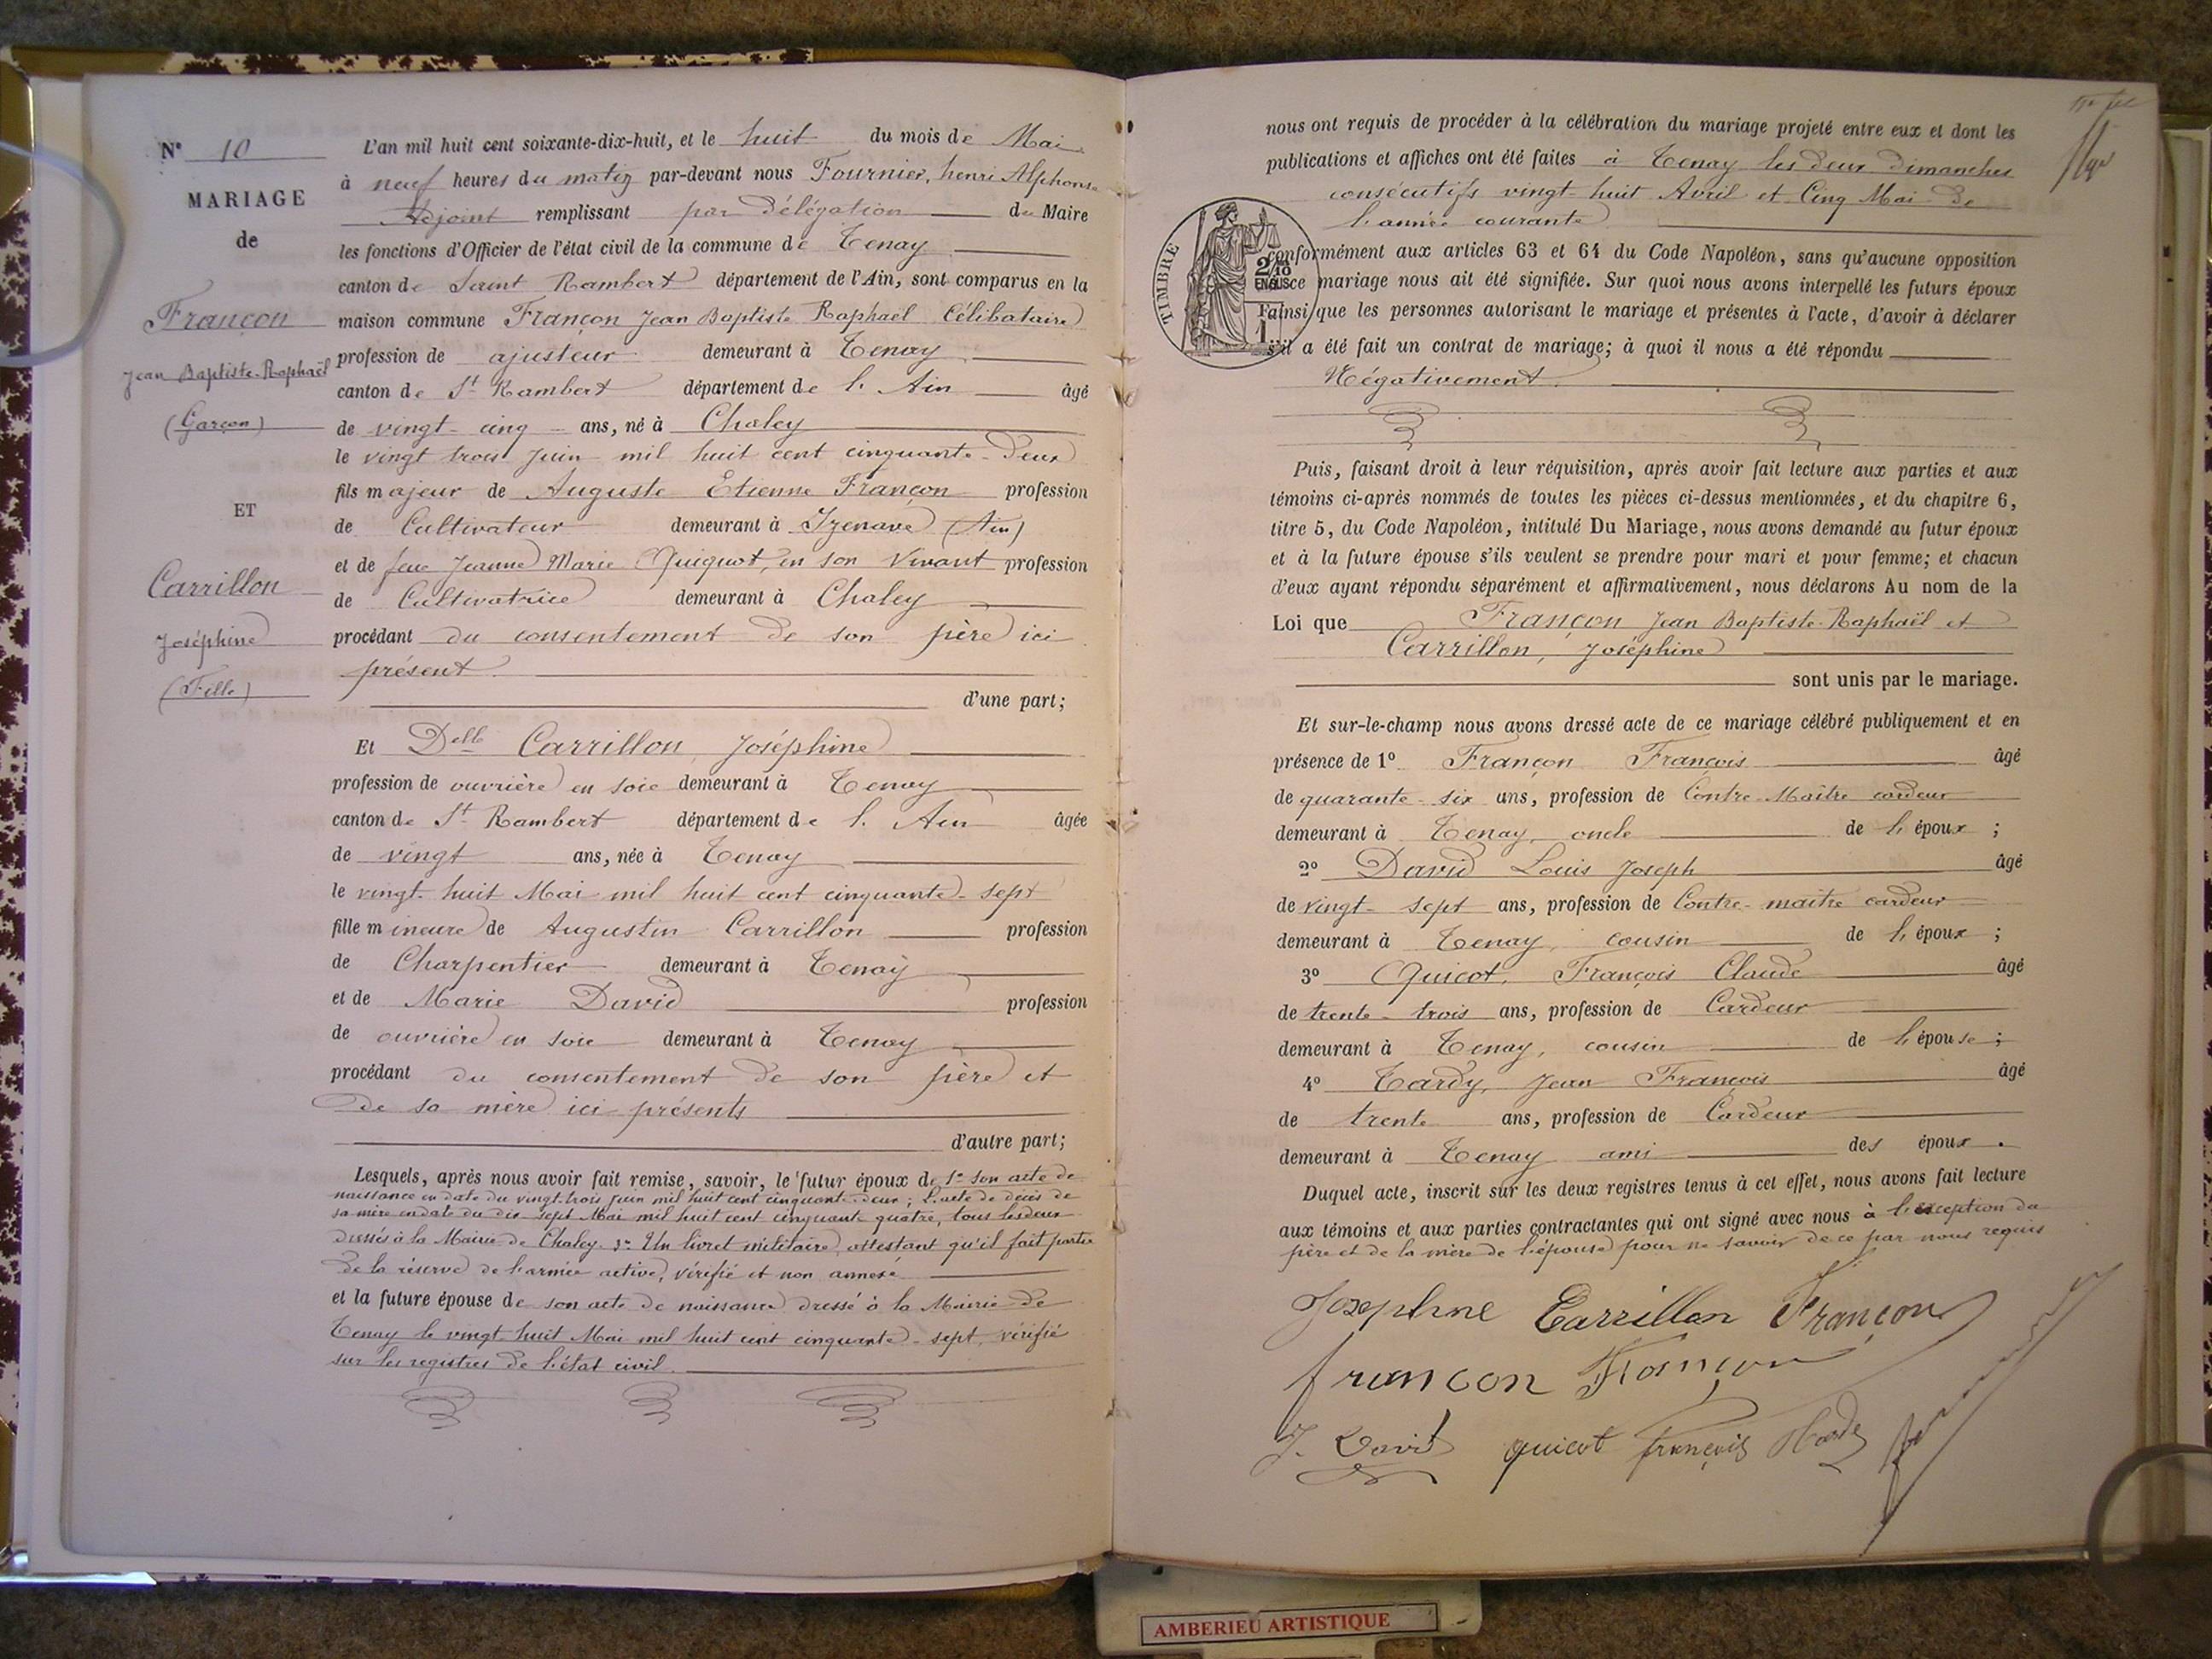 N° 10
MARIAGE
de
Françon
Jean Baptiste-Raphaël
(Garçon)
ET
Carrillon
Joséphine
(Fille)
L'an mil huit cent soixante-dix-huit, et le huit du mois de Mai
à neuf heures du matin par-devant nous Fournier, henri Alphonse
Adjoint remplissant par délégation du Maire
les fonctions d'Officier de l'état civil de la commune de Tenay
canton de Saint Rambert département de l'Ain, sont comparus en la
maison commune Françon Jean Baptiste Raphaël Célibataire
profession de ajusteur demeurant à Tenay
canton de St Rambert département de l'Ain âgé
de vingt-cinq ans, né à Chaley
le vingt trois Juin mil huit cent cinquante-deux
fils majeur de Auguste Etienne Françon profession
de Cultivateur demeurant à Izenave (Ain)
et de feue Jeanne Marie Quiquot, en son Vivant profession
de Cultivatrice demeurant à Chaley
procédant du consentement de son père ici
présent
d'une part;
Et Delle Carrillon, Joséphine
profession de ouvrière en soie demeurant à Tenay
canton de St Rambert département de l'Ain âgée
de vingt ans, née à Tenay
le vingt-huit Mai mil huit cent cinquante-sept
fille mineure de Augustin Carrillon profession
de Charpentier demeurant à Tenay
et de Marie David profession
de ouvrière en soie demeurant à Tenay
procédant du consentement de son père et
de sa mère ici présents
d'autre part;
Lesquels, après nous avoir fait remise, savoir, le futur époux de 1° son acte de
naissance en date du vingt-trois Juin mil huit cent cinquante-deux; L'acte de décès de
sa mère en date du dix sept Mai mil huit cent cinquante quatre, tous les deux
dressés à la Mairie de Chaley. 3° Un livret militaire, attestant qu'il fait partie
de la réserve de l'armée active, vérifié et non annexé
et la future épouse de son acte de naissance dressé à la Mairie de
Tenay le vingt-huit Mai mil huit cent cinquante-sept, vérifié
sur les registres de l'état civil.
nous ont requis de procéder à la célébration du mariage projeté entre eux et dont les
publications et affiches ont été faites à Tenay les deux dimanches
consécutifs vingt-huit Avril et Cinq Mai de
l'année courante
TIMBRE
2/10
EN SUS
1 F
conformément aux articles 63 et 64 du Code Napoléon, sans qu'aucune opposition
ce mariage nous ait été signifiée. Sur quoi nous avons interpellé les futurs époux
ainsi que les personnes autorisant le mariage et présentes à l'acte, d'avoir à déclarer
s'il a été fait un contrat de mariage; à quoi il nous a été répondu
Négativement.
Puis, faisant droit à leur réquisition, après avoir fait lecture aux parties et aux
témoins ci-après nommés de toutes les pièces ci-dessus mentionnées, et du chapitre 6,
titre 5, du Code Napoléon, intitulé Du Mariage, nous avons demandé au futur époux
et à la future épouse s'ils veulent se prendre pour mari et pour femme; et chacun
d'eux ayant répondu séparément et affirmativement, nous déclarons Au nom de la
Loi que Françon Jean Baptiste-Raphaël et
Carrillon, Joséphine
sont unis par le mariage.
Et sur-le-champ nous avons dressé acte de ce mariage célébré publiquement et en
présence de 1° Françon François âgé
de quarante-six ans, profession de Contre-Maître cardeur
demeurant à Tenay, oncle de l'époux;
2° David Louis Joseph âgé
de vingt-sept ans, profession de Contre-maître cardeur
demeurant à Tenay, cousin de l'époux;
3° Quicot, François Claude âgé
de trente-trois ans, profession de Cardeur
demeurant à Tenay, cousin de l'épouse;
4° Tardy, Jean François âgé
de trente ans, profession de Cardeur
demeurant à Tenay ami des époux.
Duquel acte, inscrit sur les deux registres tenus à cet effet, nous avons fait lecture
aux témoins et aux parties contractantes qui ont signé avec nous à l'exception du
père et de la mère de l'épouse pour ne savoir de ce par nous requis
Josephine Carrillon Françon
francon Françon
J. David quicot françois
AMBERIEU ARTISTIQUE